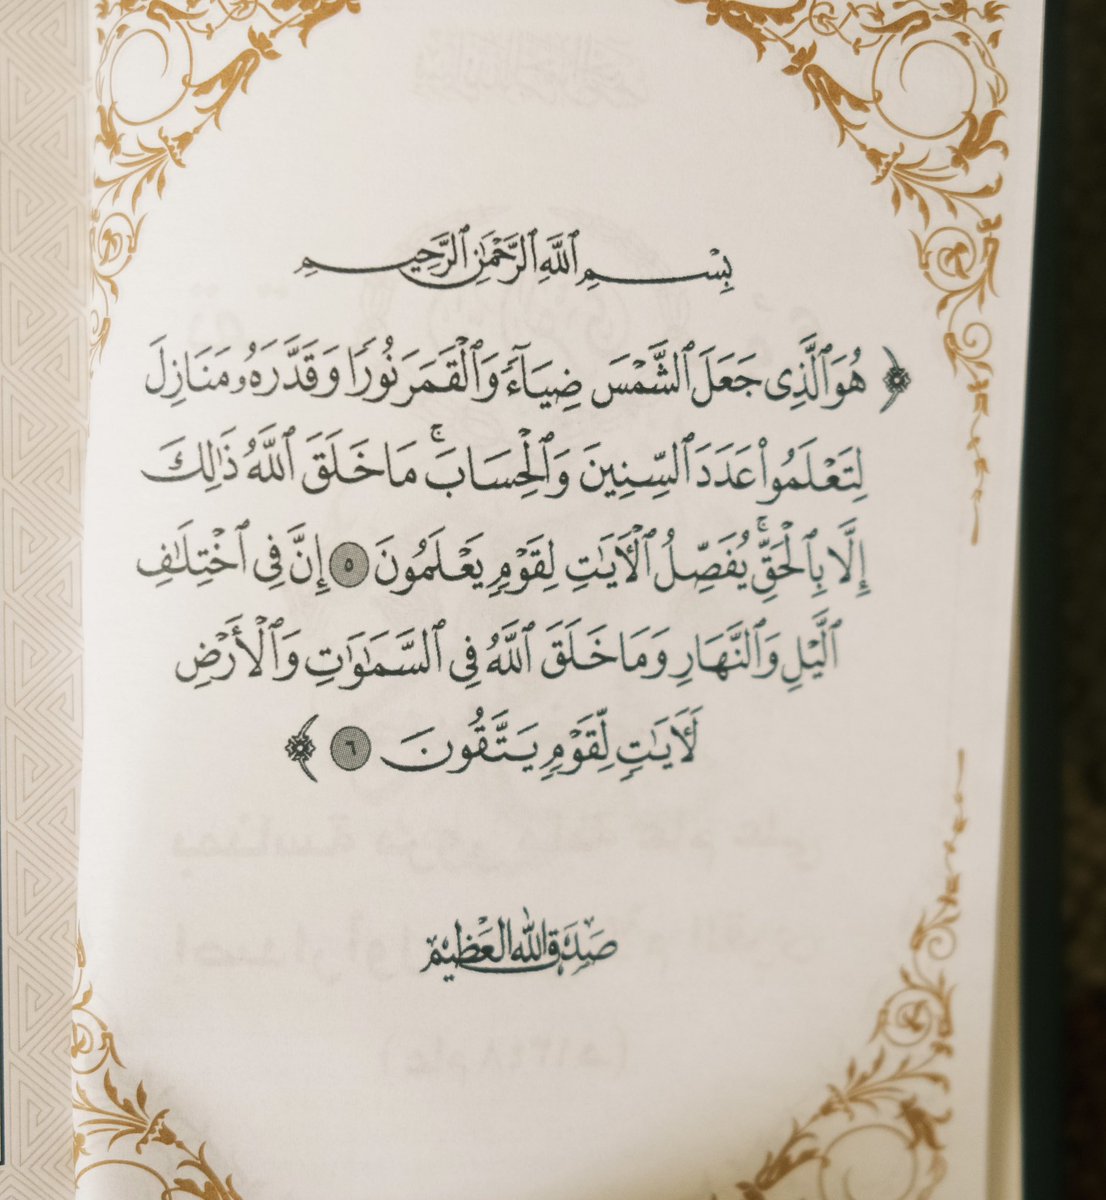 بِسْمِ ٱللَّهِ ٱلرَّحْمَٰنِ ٱلرَّحِيمِ
﴿ هُوَ ٱلَّذِى جَعَلَ ٱلشَّمْسَ ضِيَآءً وَٱلْقَمَرَ نُورًا وَقَدَّرَهُۥ مَنَازِلَ
لِتَعْلَمُوا۟ عَدَدَ ٱلسِّنِينَ وَٱلْحِسَابَ ۚ مَا خَلَقَ ٱللَّهُ ذَٰلِكَ
إِلَّا بِٱلْحَقِّ ۚ يُفَصِّلُ ٱلْـَٔايَٰتِ لِقَوْمٍ يَعْلَمُونَ ٥ إِنَّ فِى ٱخْتِلَٰفِ
ٱلَّيْلِ وَٱلنَّهَارِ وَمَا خَلَقَ ٱللَّهُ فِى ٱلسَّمَٰوَٰتِ وَٱلْأَرْضِ
لَـَٔايَٰتٍ لِّقَوْمٍ يَتَّقُونَ ٦ ﴾
صَدَقَ اللَّه العَظِيْم